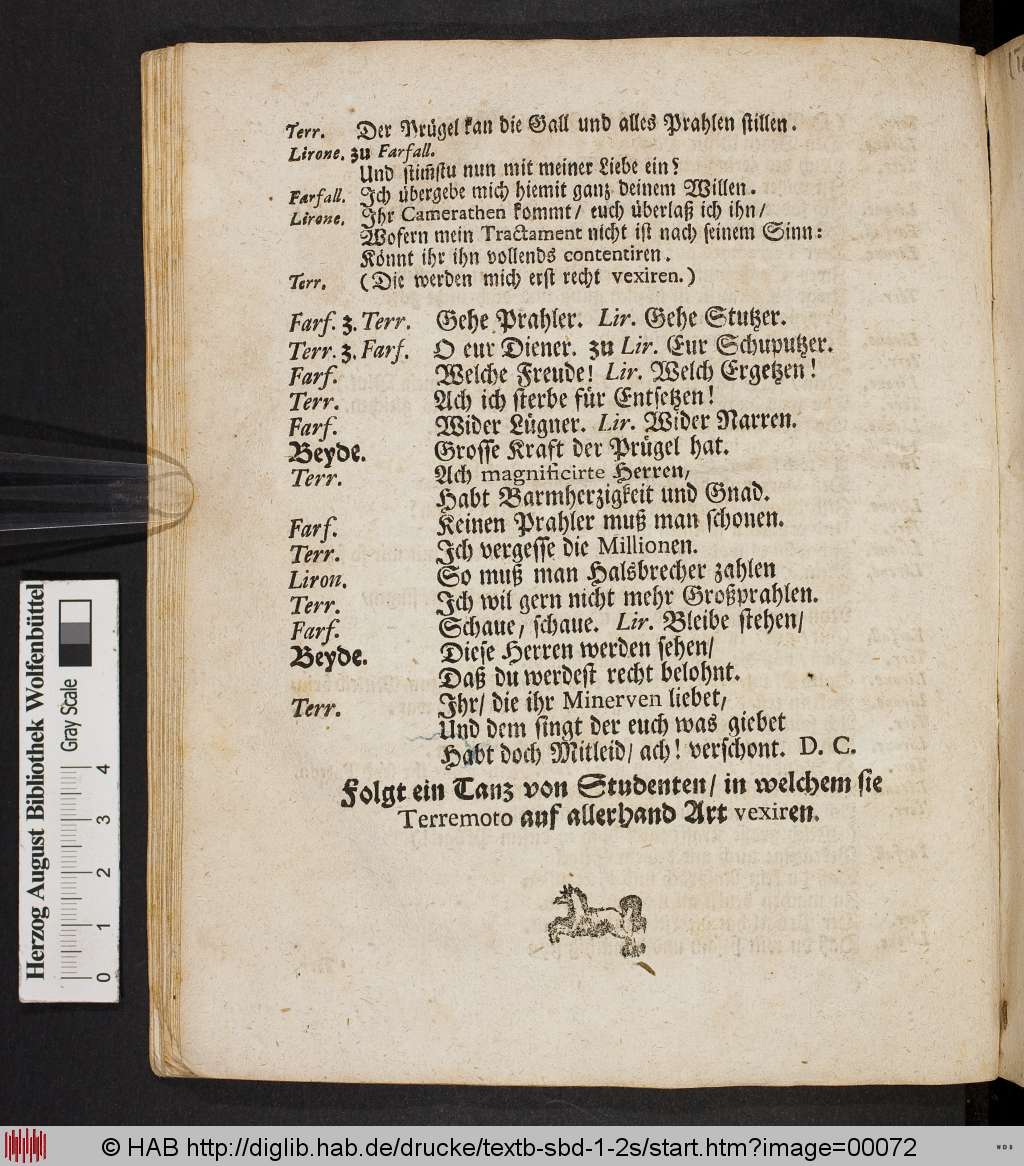 Terr. Der Prügel kan die Gall und alles Prahlen stillen.
Lirone. zu Farfall.
Und stim̃stu nun mit meiner Liebe ein?
Farfall. Ich übergebe mich hiemit ganz deinem Willen.
Lirone. Ihr Camerathen kommt/ euch überlaß ich ihn/
Wofern mein Tractament nicht ist nach seinem Sinn:
Könnt ihr ihn vollends contentiren.
Terr. (Die werden mich erst recht vexiren.)
Farf. z. Terr. Gehe Prahler. Lir. Gehe Stutzer.
Terr. z. Farf. O eur Diener. zu Lir. Eur Schuputzer.
Farf. Welche Freude! Lir. Welch Ergetzen!
Terr. Ach ich sterbe für Entsetzen!
Farf. Wider Lügner. Lir. Wider Narren.
Beyde. Grosse Kraft der Prügel hat.
Terr. Ach magnificirte Herren,
Habt Barmherzigkeit und Gnad.
Farf. Keinen Prahler muß man schonen.
Terr. Ich vergesse die Millionen.
Liron. So muß man Halsbrecher zahlen
Terr. Ich wil gern nicht mehr Großprahlen.
Farf. Schaue, schaue. Lir. Bleibe stehen/
Beyde. Diese Herren werden sehen/
Daß du werdest recht belohnt.
Terr. Ihr/ die ihr Minerven liebet,
Und dem singt der euch was giebet
Habt doch Mitleid/ ach! verschont. D. C.
Folgt ein Tanz von Studenten/ in welchem sie
Terremoto auf allerhand Art vexiren.
Herzog August Bibliothek Wolfenbüttel
Gray Scale
0 1 2 3 4
© HAB http://diglib.hab.de/drucke/textb-sbd-1-2s/start.htm?image=00072